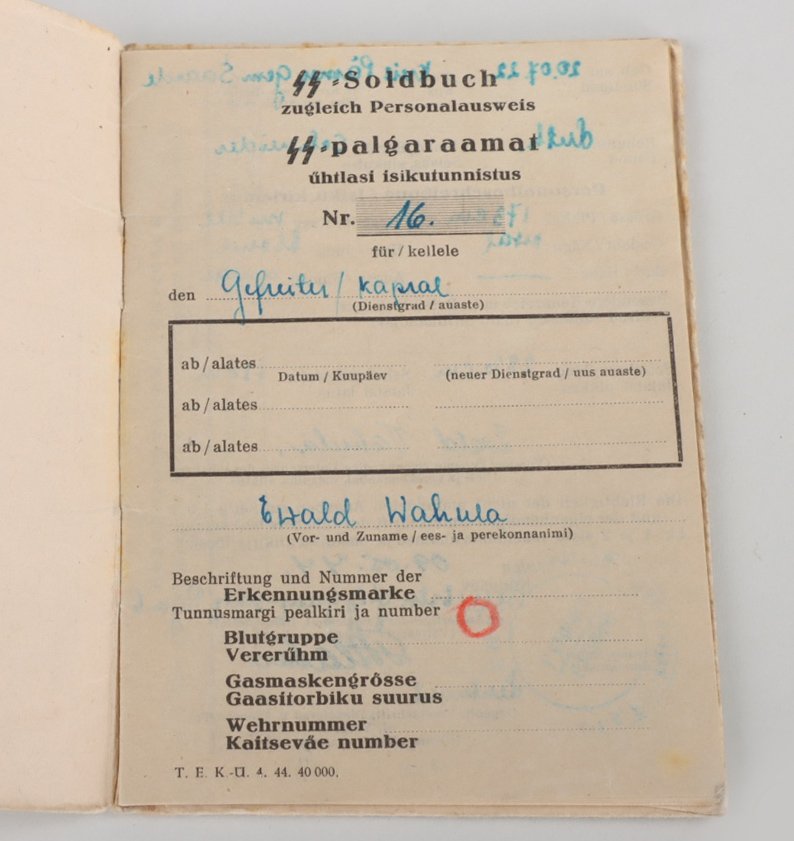 SS-Soldbuch
zugleich Personalausweis
SS-palgaraamat
űhtlasi isikutunnistus
Nr. 16.
für / kellele
den Gefreiter / Kapral
(Dienstgrad / auaste)
ab / alates
Datum / Kuupäev (neuer Dienstgrad / uus auaste)
ab / alates
ab / alates
Ewald Wahula
(Vor- und Zuname / ees- ja perekonnanimi)
Beschriftung und Nummer der
Erkennungsmarke
Tunnusmargi pealkiri ja number
Blutgruppe
Vererűhm
Gasmaskengrősse
Gaasitorbiku suurus
Wehrnummer
Kaitseväe number
T. E. K.-Ü. 4. 44. 40 000.